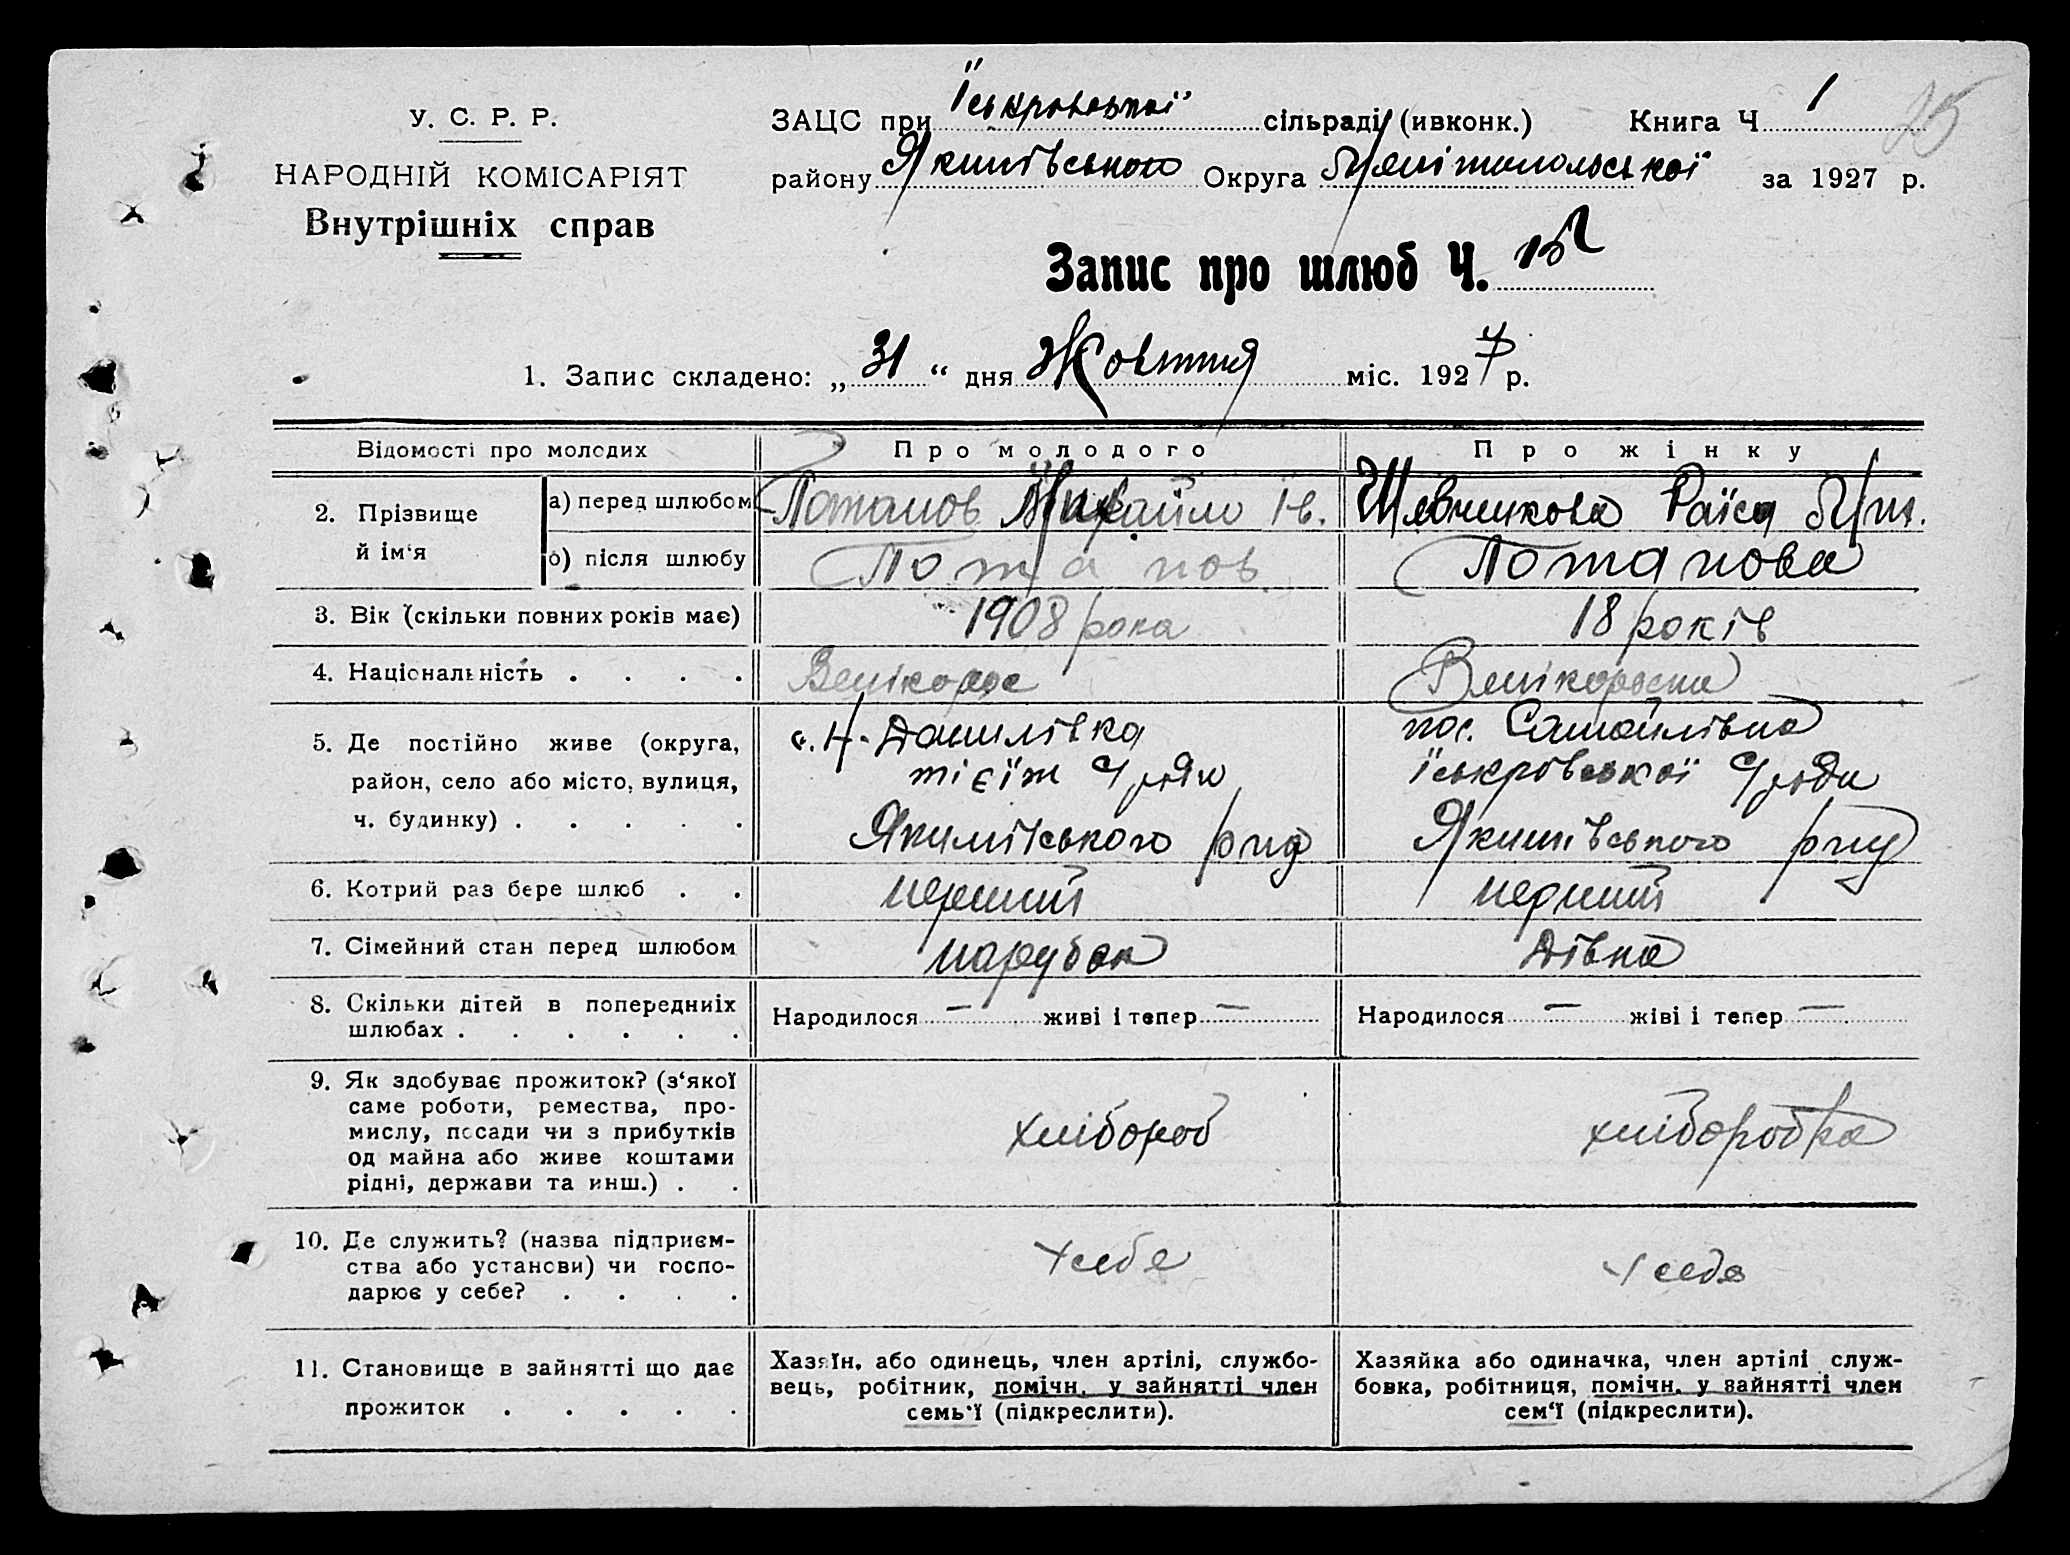 У. С. Р. Р.
НАРОДНІЙ КОМІСАРІЯТ
Внутрішніх справ
ЗАЦС при Їскровської сільраді (ивконк.) Книга Ч. 1
25
району Якимівського Округа Мелітопольської за 1927 р.
Запис про шлюб Ч.
1. Запис складено: „ 31 “ дня Жовтня міс. 1927 р.
Відомості про молодих Про молодого Про жінку
2. Прізвище й ім‘я
а) перед шлюбом Потапов Михайло Ів. Раїса
б) після шлюбу Потапов Потапова
3. Вік (скільки повних років має) 1908 рока 18 років
4. Національність . . . . Велікорос Велікороска
5. Де постійно живе (округа, с. Н-Данилівка пос. Самойлівка
район, село або місто, вулиця, тієїж с/ради Їскрівської с/ради
ч. будинку) . . . . . Якимівського р-ну Якимівського р-ну
6. Котрий раз бере шлюб . . перший перший
7. Сімейний стан перед шлюбом парубок дівка
8. Скільки дітей в попередниіх Народилося — живі і тепер — Народилося — жіві і тепер —
шлюбах . . . . . .
9. Як здобуває прожиток? (з‘якої
саме роботи, ремества, про-
мислу, посади чи з прибутків хлібороб хлібороброка
од майна або живе коштами
рідні, держави та инш.) . .
10. Де служить? (назва підприєм-
ства або установи) чи госпо- у себе у себе
дарює у себе? . . . .
11. Становище в зайнятті що дає
прожиток . . . . .
Хазяїн, або одинець, член артілі, службо-
вець, робітник, помічн. у зайнятті член
семь‘ї (підкреслити).
Хазяйка або одиначка, член артілі служ-
бовка, робітниця, помічн. у зайнятті член
сем‘ї (підкреслити).